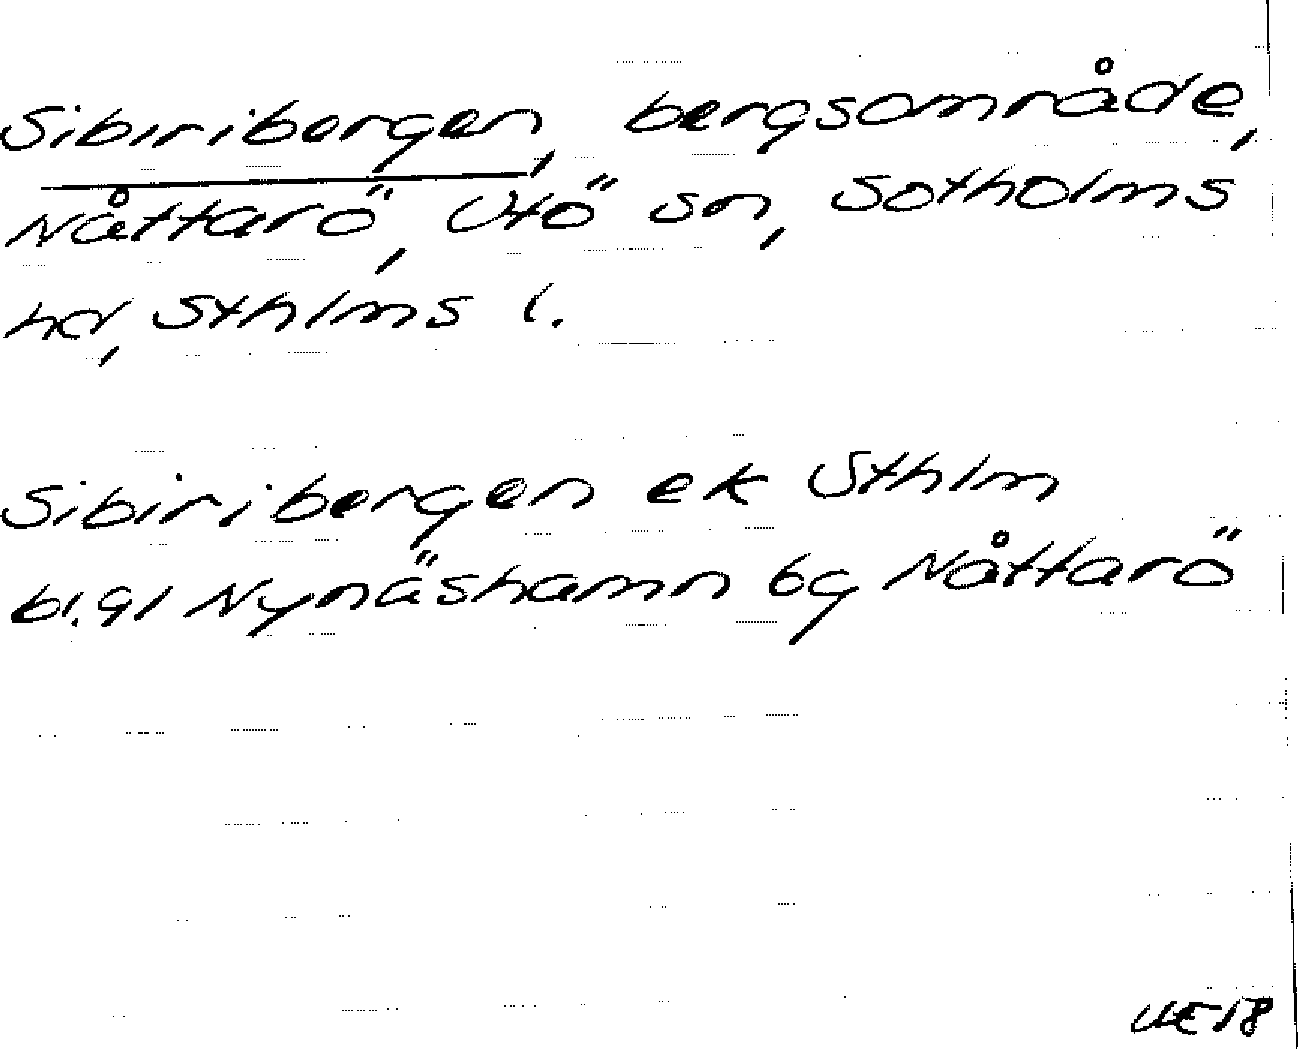 Sibiribergen, bergsområde,
Nåttarö, Utö sn, Sotholms
hd, Sthlms l.
Sibiribergen ek Sthlm
bl. 91 Nynäshamn 6g Nåttarö
UE18